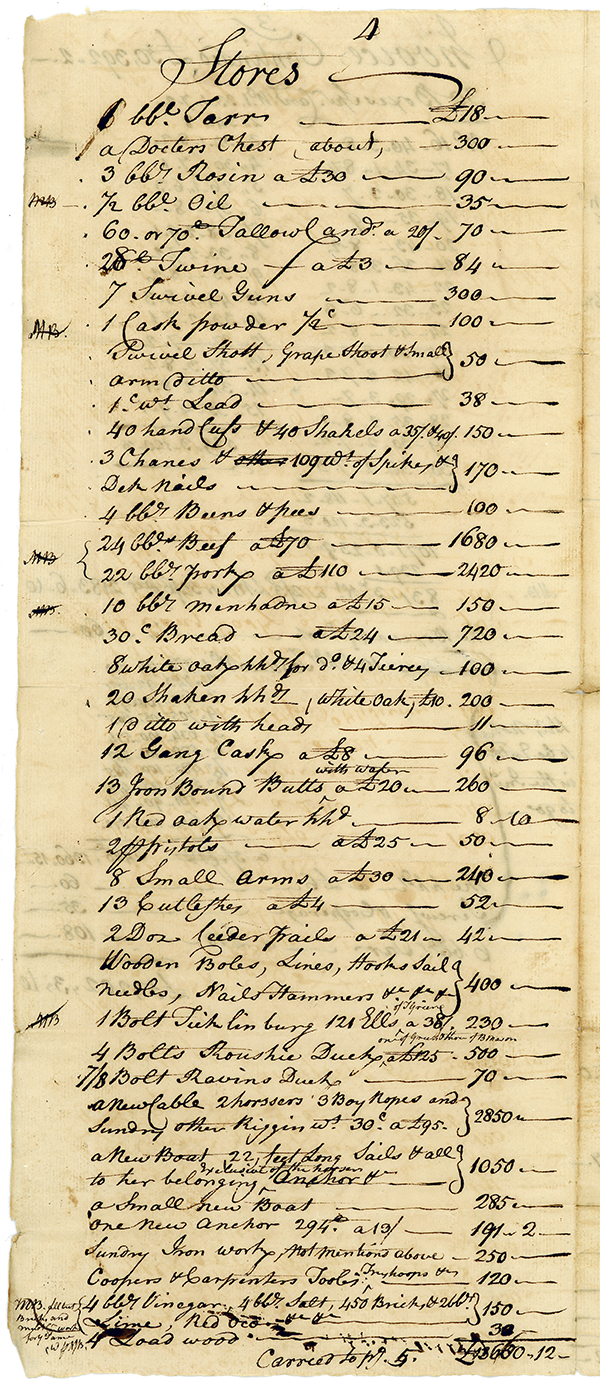 4
Stores
6 bbs. Tarr £18
a Docters Chest, about, 300
3 bbs. Rosin a £30 90
½ bbl. Oil 35
60 or 70 Tallow Cand. a 20/ 70
28 Twine a £3 84
7 Swivel Guns 300
NB. 1 Cask powder ½c 100
Swivel Shott, Grape Shoot & Small
arm ditto 50
1c wt. Lead 38
40 hand Cufs & 40 Shakels a 35/ & 40/ 150
3 Chanes & 109 wt. of Spikes &
Dek Nails 170
4 bbs. Beens & pees 100
NB 24 bbs. Beef a £70 1680
22 bbs. pork a £110 2420
10 bbs. menhadne a £15 150
30c Bread a £24 720
8 white oak hhds for do. & 4 Tierces 100
20 Shaken hhds, white Oak, £10 200
1 ditto with heads 11
12 Gang Casks a £8 96
with water
13 Iron Bound Butts a £20 260
1 Red oak water hhd. 8 10
2 pr pistols a £25 50
8 Small arms a £30 240
13 Cutleshes a £4 52
2 Doz Ceeder pails a £21 42
Wooden Boles, Lines, Hooks Sail
needles, Nails Hammers &c &c &c 400
NB 1 Bolt Ticklinburg 121 Ells a 38/ 230
4 Bolts Roushie Duck a £125 500
7/8 Bolt Ravins Duck 70
a New Cable 2 horssers 3 Boy Ropes and
Sundry other Riggin wt. 30c. a £95 2850
a New Boat 22 feet Long Sails & all
Exclusive of the horsers
to her belonging Anchor &c 1050
a Small new Boat 285
one New Anchor 294 a 13/ 191 2
Sundry Iron work, Not mentions above 250
Coopers & Carpenters Tooles, Trushoops &c 120
4 bbs. Vinegar, 4 bbs. Salt, 450 Brick, & 2 bbs.
Lime, Red &c &c 150
4 Load wood 30
Carried to pg. 5. 12